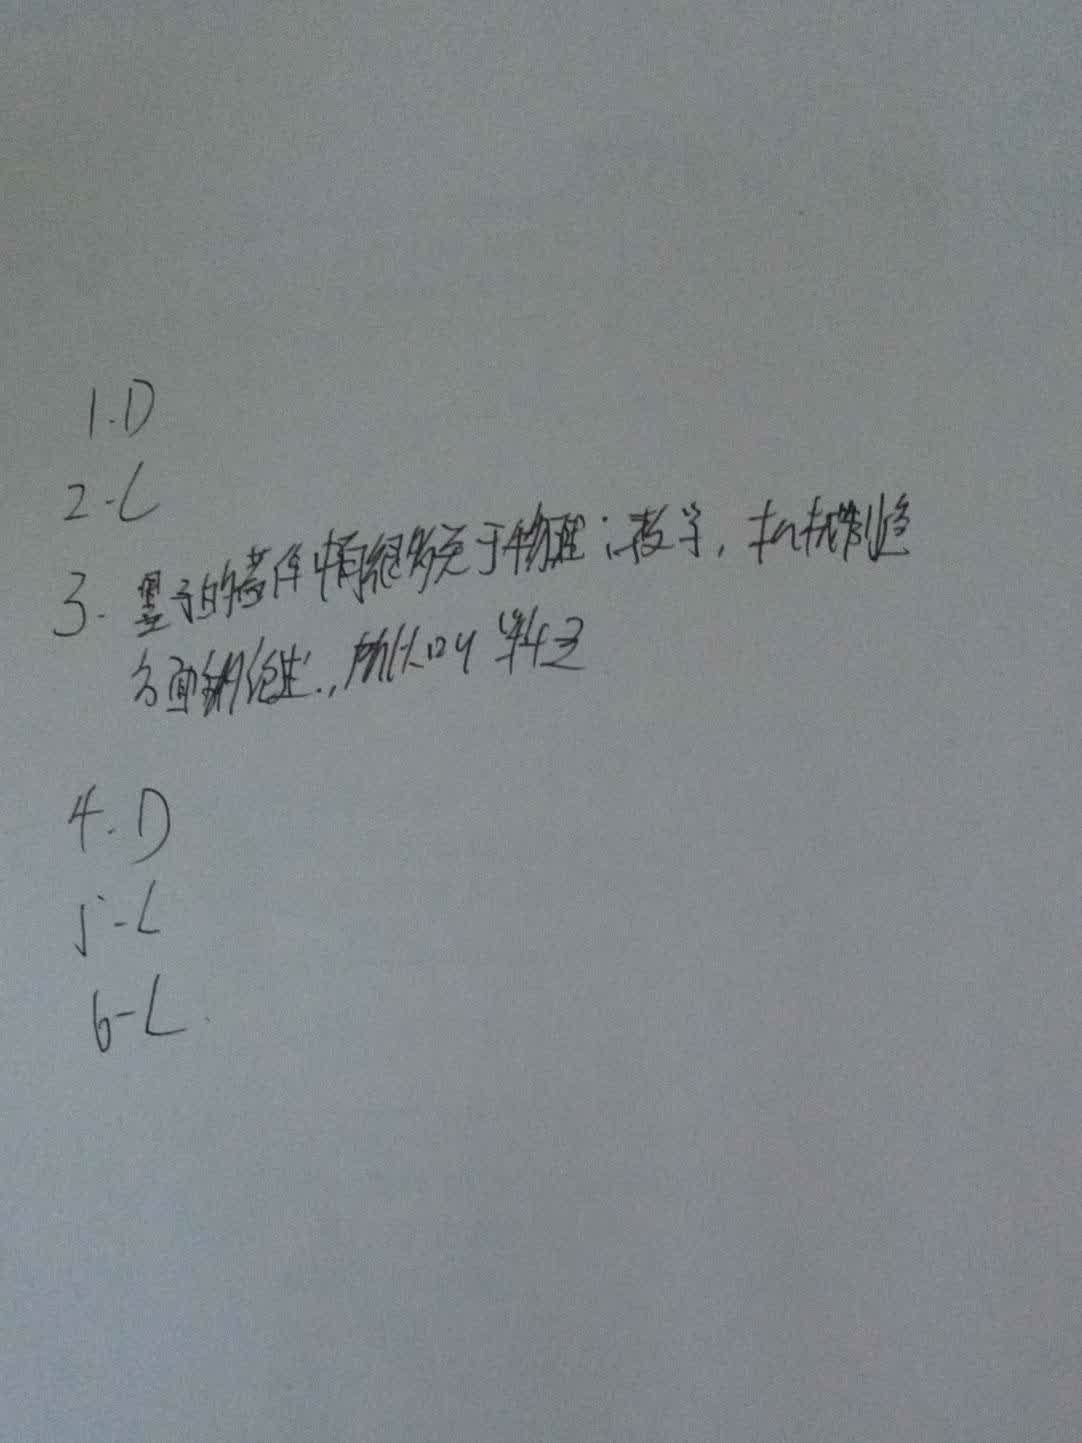 1.D
2-C
3. 墨子的著作中有很多关于物理、数学,机械制造
方面的论述.,所以叫 科圣
4.D
5-C
6-C.